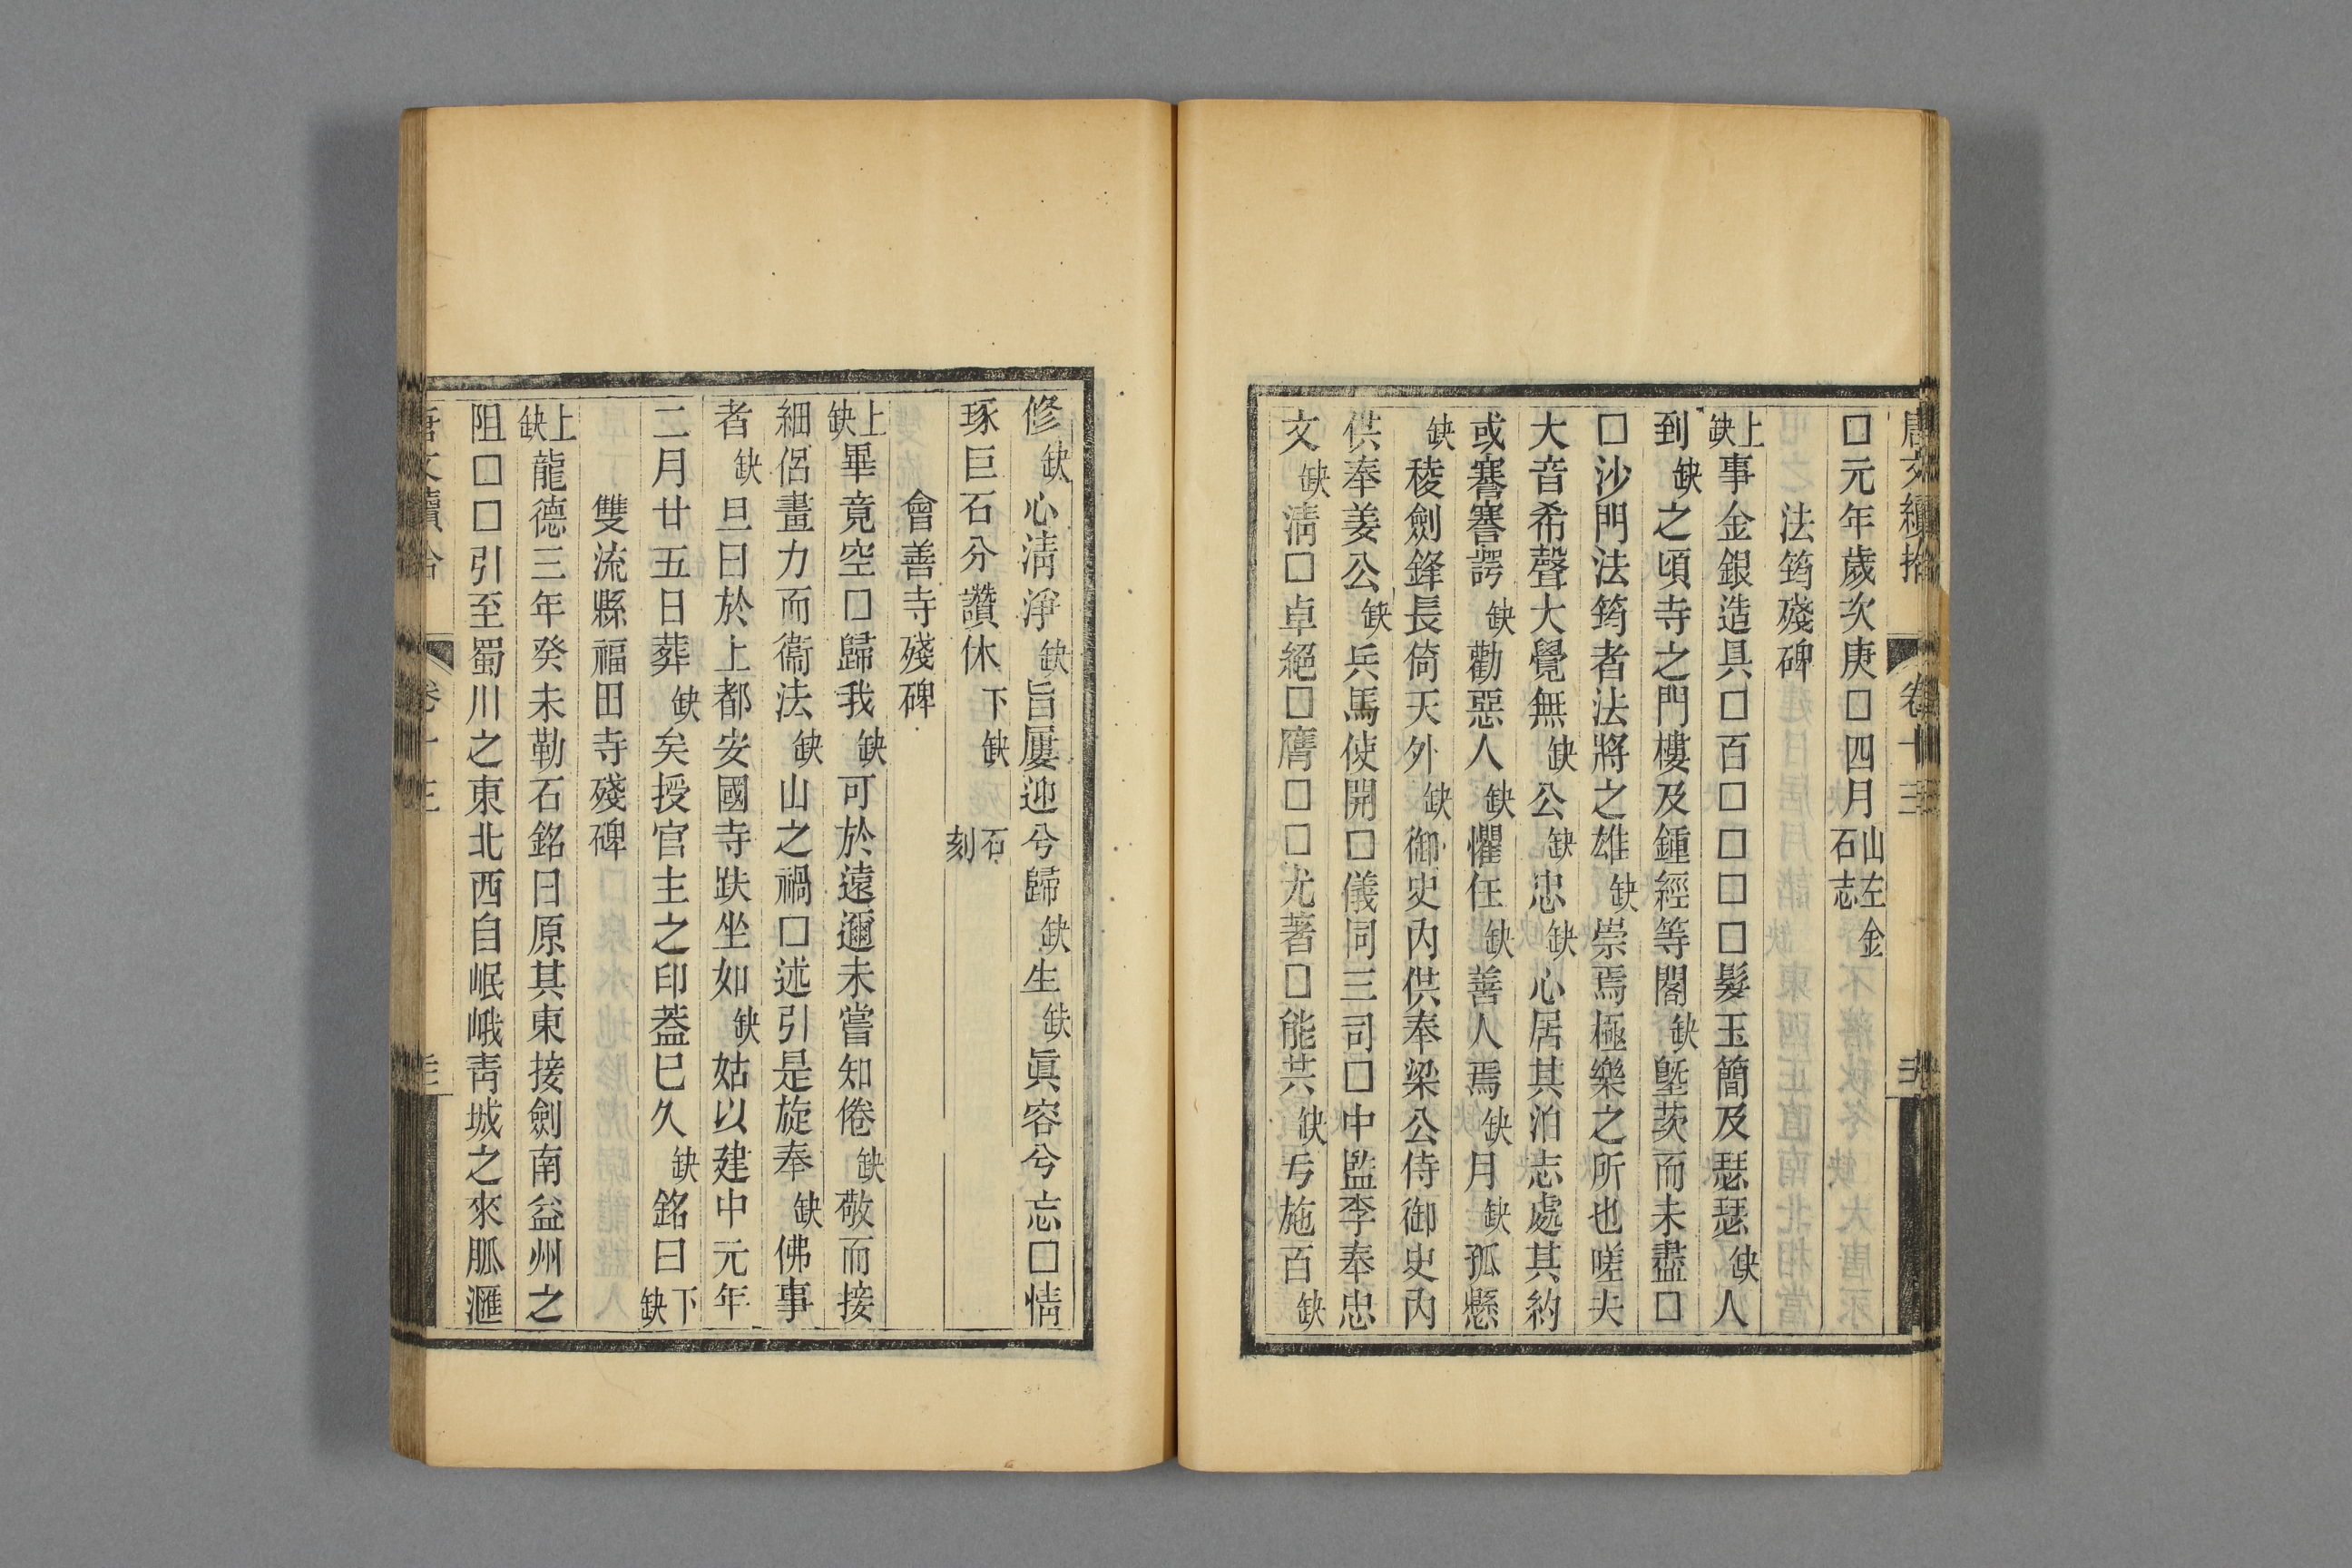 唐文續拾 卷十三 三
□元年歲次庚□四月山左金石志
法筠殘碑
上缺事金銀造具□百□□□□髮玉簡及瑟瑟缺人
到缺之頃寺之門樓及鍾經等閣缺塈茨而未盡□
□沙門法筠者法將之雄缺崇焉極樂之所也嗟夫
大音希聲大覺無缺公缺忠缺心居其泊志處其約
或謇謇諤缺勸惡人缺懼任缺善人焉缺月缺孤懸
缺稜劍鋒長倚天外缺御史內供奉梁公侍御史內
供奉姜公缺兵馬使開□儀同三司□中監李奉忠
文缺淸□卓絕□膺□□尤著□能其缺亏施百缺
修缺心淸淨缺旨屢迎兮歸缺生缺眞容兮忘□情
琢巨石分讚休下缺 石刻
會善寺殘碑
上缺畢竟空□歸我缺可於遠邇未嘗知倦缺敬而接
細侶畫力而衞法缺山之禍□述引是旋奉缺佛事
者缺旦曰於上都安國寺趺坐如缺姑以建中元年
二月廿五日葬缺矣授官主之印葢巳久缺銘曰下缺
雙流縣福田寺殘碑
上缺龍德三年癸未勒石銘曰原其東接劍南益州之
阻□□引至蜀川之東北西自岷峨靑城之來脈滙
唐文續拾 卷十三 三